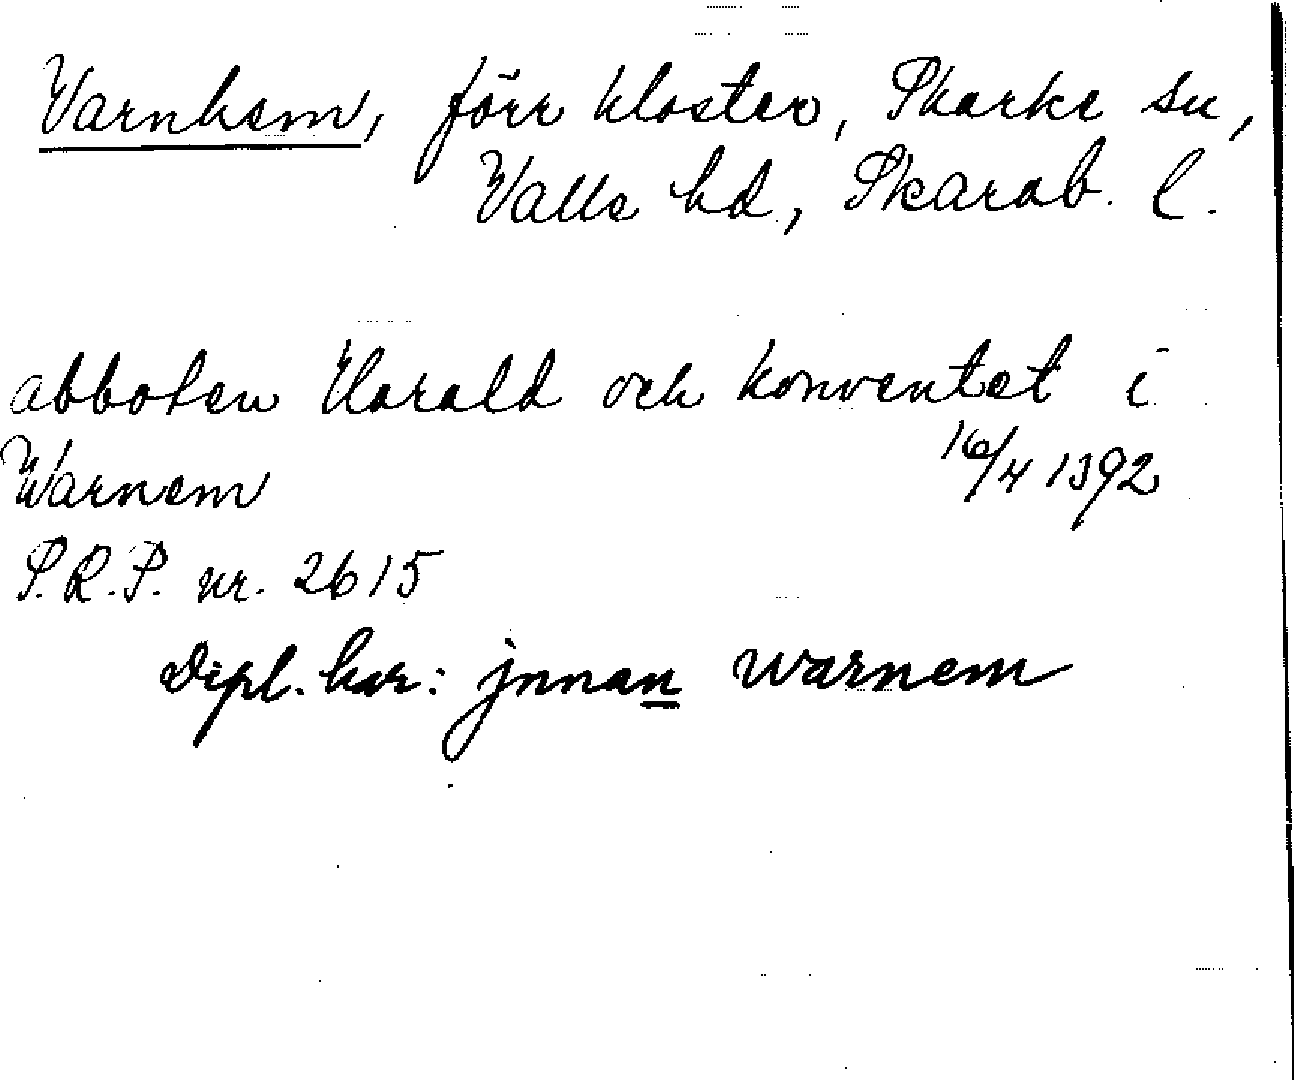 Varnhem, förr kloster, Skarke sn,
Valle hd, Skarab. l.
abboten Harald och konventet i
Warnem 16/4 1392
S.R.P. nr. 2615
Dipl. har: jnnan warnem